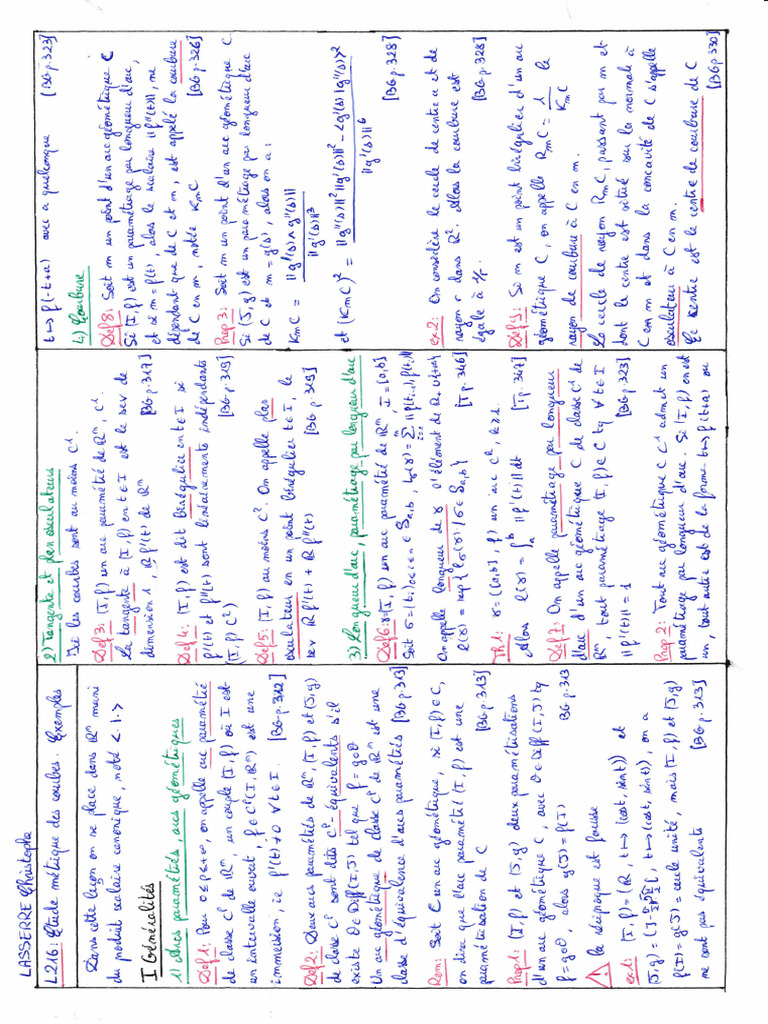 LASSERRE Christophe
L216: Etude métrique des courbes. Exemples
Dans cette leçon on se place dans ℝⁿ muni
du produit scalaire canonique, noté <.,.>
I Généralités
1) Arcs paramétrés, arcs géométriques
Def 1: Pour 0≤p≤+∞, on appelle arc paramétré
de classe Cᵖ de ℝⁿ, un couple (I,f) où I est
un intervalle ouvert, f∈Cᵖ(I,ℝⁿ) est une
immersion, ie f'(t)≠0 ∀t∈I. [BG p.312]
Def 2: Deux arcs paramétrés de ℝⁿ, (I,f) et (J,g)
de classe Cᵖ sont dits Cᵖ-équivalents s'il
existe θ∈Diff(I,J) tel que f=g∘θ
Un arc géométrique de classe Cᵖ de ℝⁿ est une
classe d'équivalence d'arcs paramétrés [BG p.313]
Rem: Soit C un arc géométrique, si (I,f)∈C,
on dira que l'arc paramétré (I,f) est une
paramétrisation de C [BG p.313]
Prop 1: (I,f) et (J,g) deux paramétrisations
d'un arc géométrique C, avec θ∈Diff(I,J) tq
f=g∘θ, alors g(J)=f(I) BG p.313
⚠ la réciproque est fausse
ex 1: (I,f)=(ℝ, t↦(cost, sint)) et
t↦(cost, sint)), on a
f(I)=g(J)=cercle unité, mais (I,f) et (J,g)
ne sont pas équivalents [BG p.313]
2) Tangente et plan osculateurs
Ici les courbes sont au moins C¹.
Def 3: (I,f) un arc paramétré de ℝⁿ, C¹.
La tangente à (I,f) en t∈I est le sev de
dimension 1, ℝf'(t) de ℝⁿ [BG p.317]
Def 4: (I,f) est dit birégulier en t∈I si
f'(t) et f''(t) sont linéairements indépendants
((I,f) C²) [BG p.319]
Def 5: (I,f) au moins C². On appelle plan
osculateur en un point birégulier t∈I, le
sev ℝf'(t)+ℝf''(t) [BG p.319]
3) Longueur d'arc, paramétrage par longueur d'arc
Def 6: γ=(I,f) un arc paramétré de ℝⁿ, I=[a,b]
On appelle longueur de γ l'élément de
ℓ(γ)=sup{ℓσ(γ)/σ∈S_{a,b}} [I p.346]
Th 1: γ=([a,b],f) un arc Cᵏ, k≥1.
Alors ℓ(γ)=∫ₐᵇ ||f'(t)||dt [I p.347]
Def 7: On appelle paramétrage par longueur
d'arc d'un arc géométrique C de classe C¹ de
ℝⁿ, tout paramétrage (I,f)∈C tq ∀t∈I
||f'(t)||=1 [BG p.323]
Prop 2: Tout arc géométrique C C¹ admet un
paramétrage par longueur d'arc. Si (I,f) en est
un, tout autre est de la forme t↦f(t+a) ou
t↦f(-t+a) avec a quelconque [BG p.323]
4) Courbure
Def 8: Soit m un point d'un arc géométrique C
Si (I,f) est un paramétrage par longueur d'arc,
et si m=f(t), alors le scalaire ||f''(t)||, ne
dépendant que de C et m, est appelé la courbure
de C en m, notée K_mC [BG p.326]
Prop 3: Soit m un point d'un arc géométrique C.
Si (J,g) est un paramétrage par longueur d'arc
de C et m=g(s), alors on a:
K_mC = ||g'(s)∧g''(s)|| / ||g'(s)||³
et (K_mC)² = (||g''(s)||²||g'(s)||² - <g'(s)|g''(s)>²) / ||g'(s)||⁶
[BG p.328]
ex 2: On considère le cercle de centre a et de
rayon r dans ℝ². Alors la courbure est
égale à 1/r. [BG p.328]
Def 9: Si m est un point birégulier d'un arc
géométrique C, on appelle R_mC = 1/K_mC le
rayon de courbure à C en m.
Le cercle de rayon R_mC, passant par m et
dont le centre est situé sur la normale à
C en m et dans la concavité de C s'appelle
osculateur à C en m.
Ce centre est le centre de courbure de C
[BG p.330]